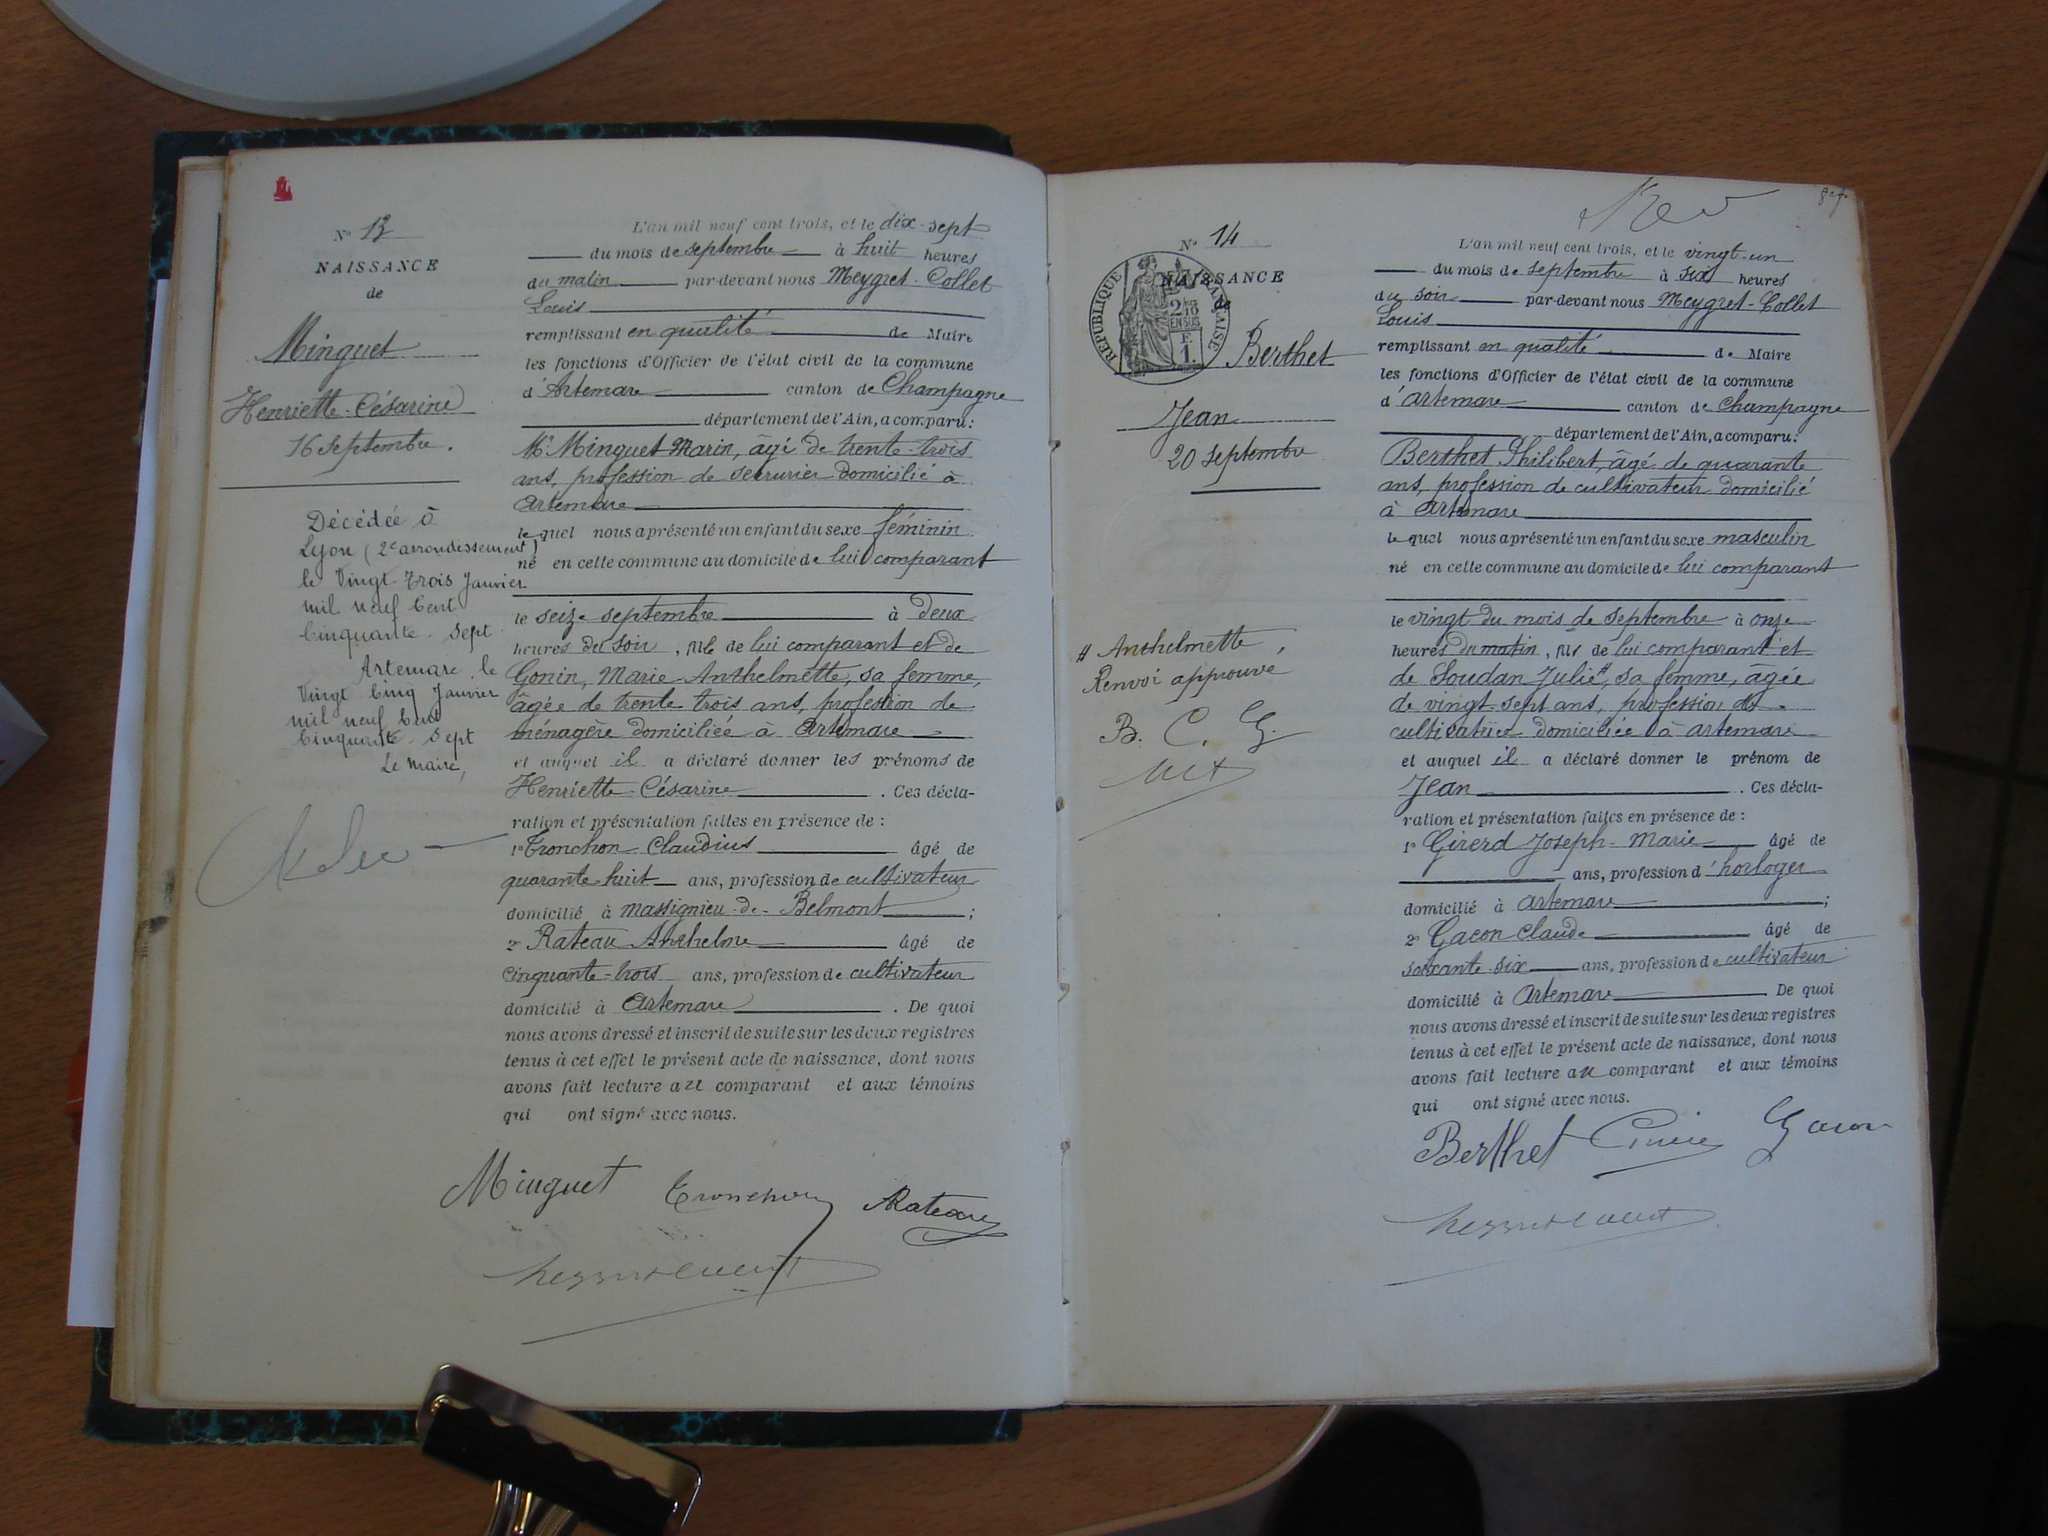 N° 13
NAISSANCE
de
Minguet
Henriette-Césarine
16 septembre.
Décédée à
Lyon (2e arrondissement)
le Vingt Trois Janvier
mil neuf Cent
Cinquante-Sept
Artemare, le
Vingt Cinq Janvier
mil neuf Cent
Cinquante-Sept
Le Maire,
L'an mil neuf cent trois, et le dix-sept
du mois de septembre à huit heures
du matin par-devant nous Meygret-Collet
Louis
remplissant en qualité de Maire
les fonctions d'Officier de l'état civil de la commune
d'Artemare canton de Champagne
département de l'Ain, a comparu:
Mr Minguet Marin, âgé de trente-trois
ans, profession de serrurier domicilié à
Artemare
lequel nous a présenté un enfant du sexe féminin
né en cette commune au domicile de lui comparant
le seize septembre à deux
heures du soir, fille de lui comparant et de
Gonin, Marie-Anthelmette, sa femme,
âgée de trente trois ans, profession de
ménagère domiciliée à Artemare
et auquel il a déclaré donner les prénoms de
Henriette-Césarine. Ces décla-
ration et présentation faites en présence de:
1° Tronchon Claudius âgé de
quarante huit ans, profession de cultivateur
domicilié à Massignieu-de-Belmont;
2° Rateau Anthelme âgé de
cinquante-trois ans, profession de cultivateur
domicilié à Artemare. De quoi
nous avons dressé et inscrit de suite sur les deux registres
tenus à cet effet le présent acte de naissance, dont nous
avons fait lecture au comparant et aux témoins
qui ont signé avec nous.
Minguet Tronchon Rateau
N° 14
NAISSANCE
de
RÉPUBLIQUE FRANÇAISE
2/10
EN SUS
F
1.
Berthet
Jean
20 septembre
# Anthelmette
Renvoi approuvé
B. C. G.
L'an mil neuf cent trois, et le vingt-un
du mois de septembre à six heures
du soir par-devant nous Meygret-Collet
Louis
remplissant en qualité de Maire
les fonctions d'Officier de l'état civil de la commune
d'Artemare canton de Champagne
département de l'Ain, a comparu:
Berthet Philibert, âgé de quarante
ans, profession de cultivateur domicilié
à Artemare
lequel nous a présenté un enfant du sexe masculin
né en cette commune au domicile de lui comparant
le vingt du mois de septembre à onze
heures du matin, fils de lui comparant et
de Soudan Julie #, sa femme, âgée
de vingt-sept ans, profession de
cultivatrice domiciliée à Artemare
et auquel il a déclaré donner le prénom de
Jean. Ces décla-
ration et présentation faites en présence de:
1° Girerd Joseph-Marie âgé de
ans, profession d'horloger
domicilié à Artemare;
2° Gacon Claude âgé de
soixante six ans, profession de cultivateur
domicilié à Artemare De quoi
nous avons dressé et inscrit de suite sur les deux registres
tenus à cet effet le présent acte de naissance, dont nous
avons fait lecture au comparant et aux témoins
qui ont signé avec nous.
Berthet Gacon